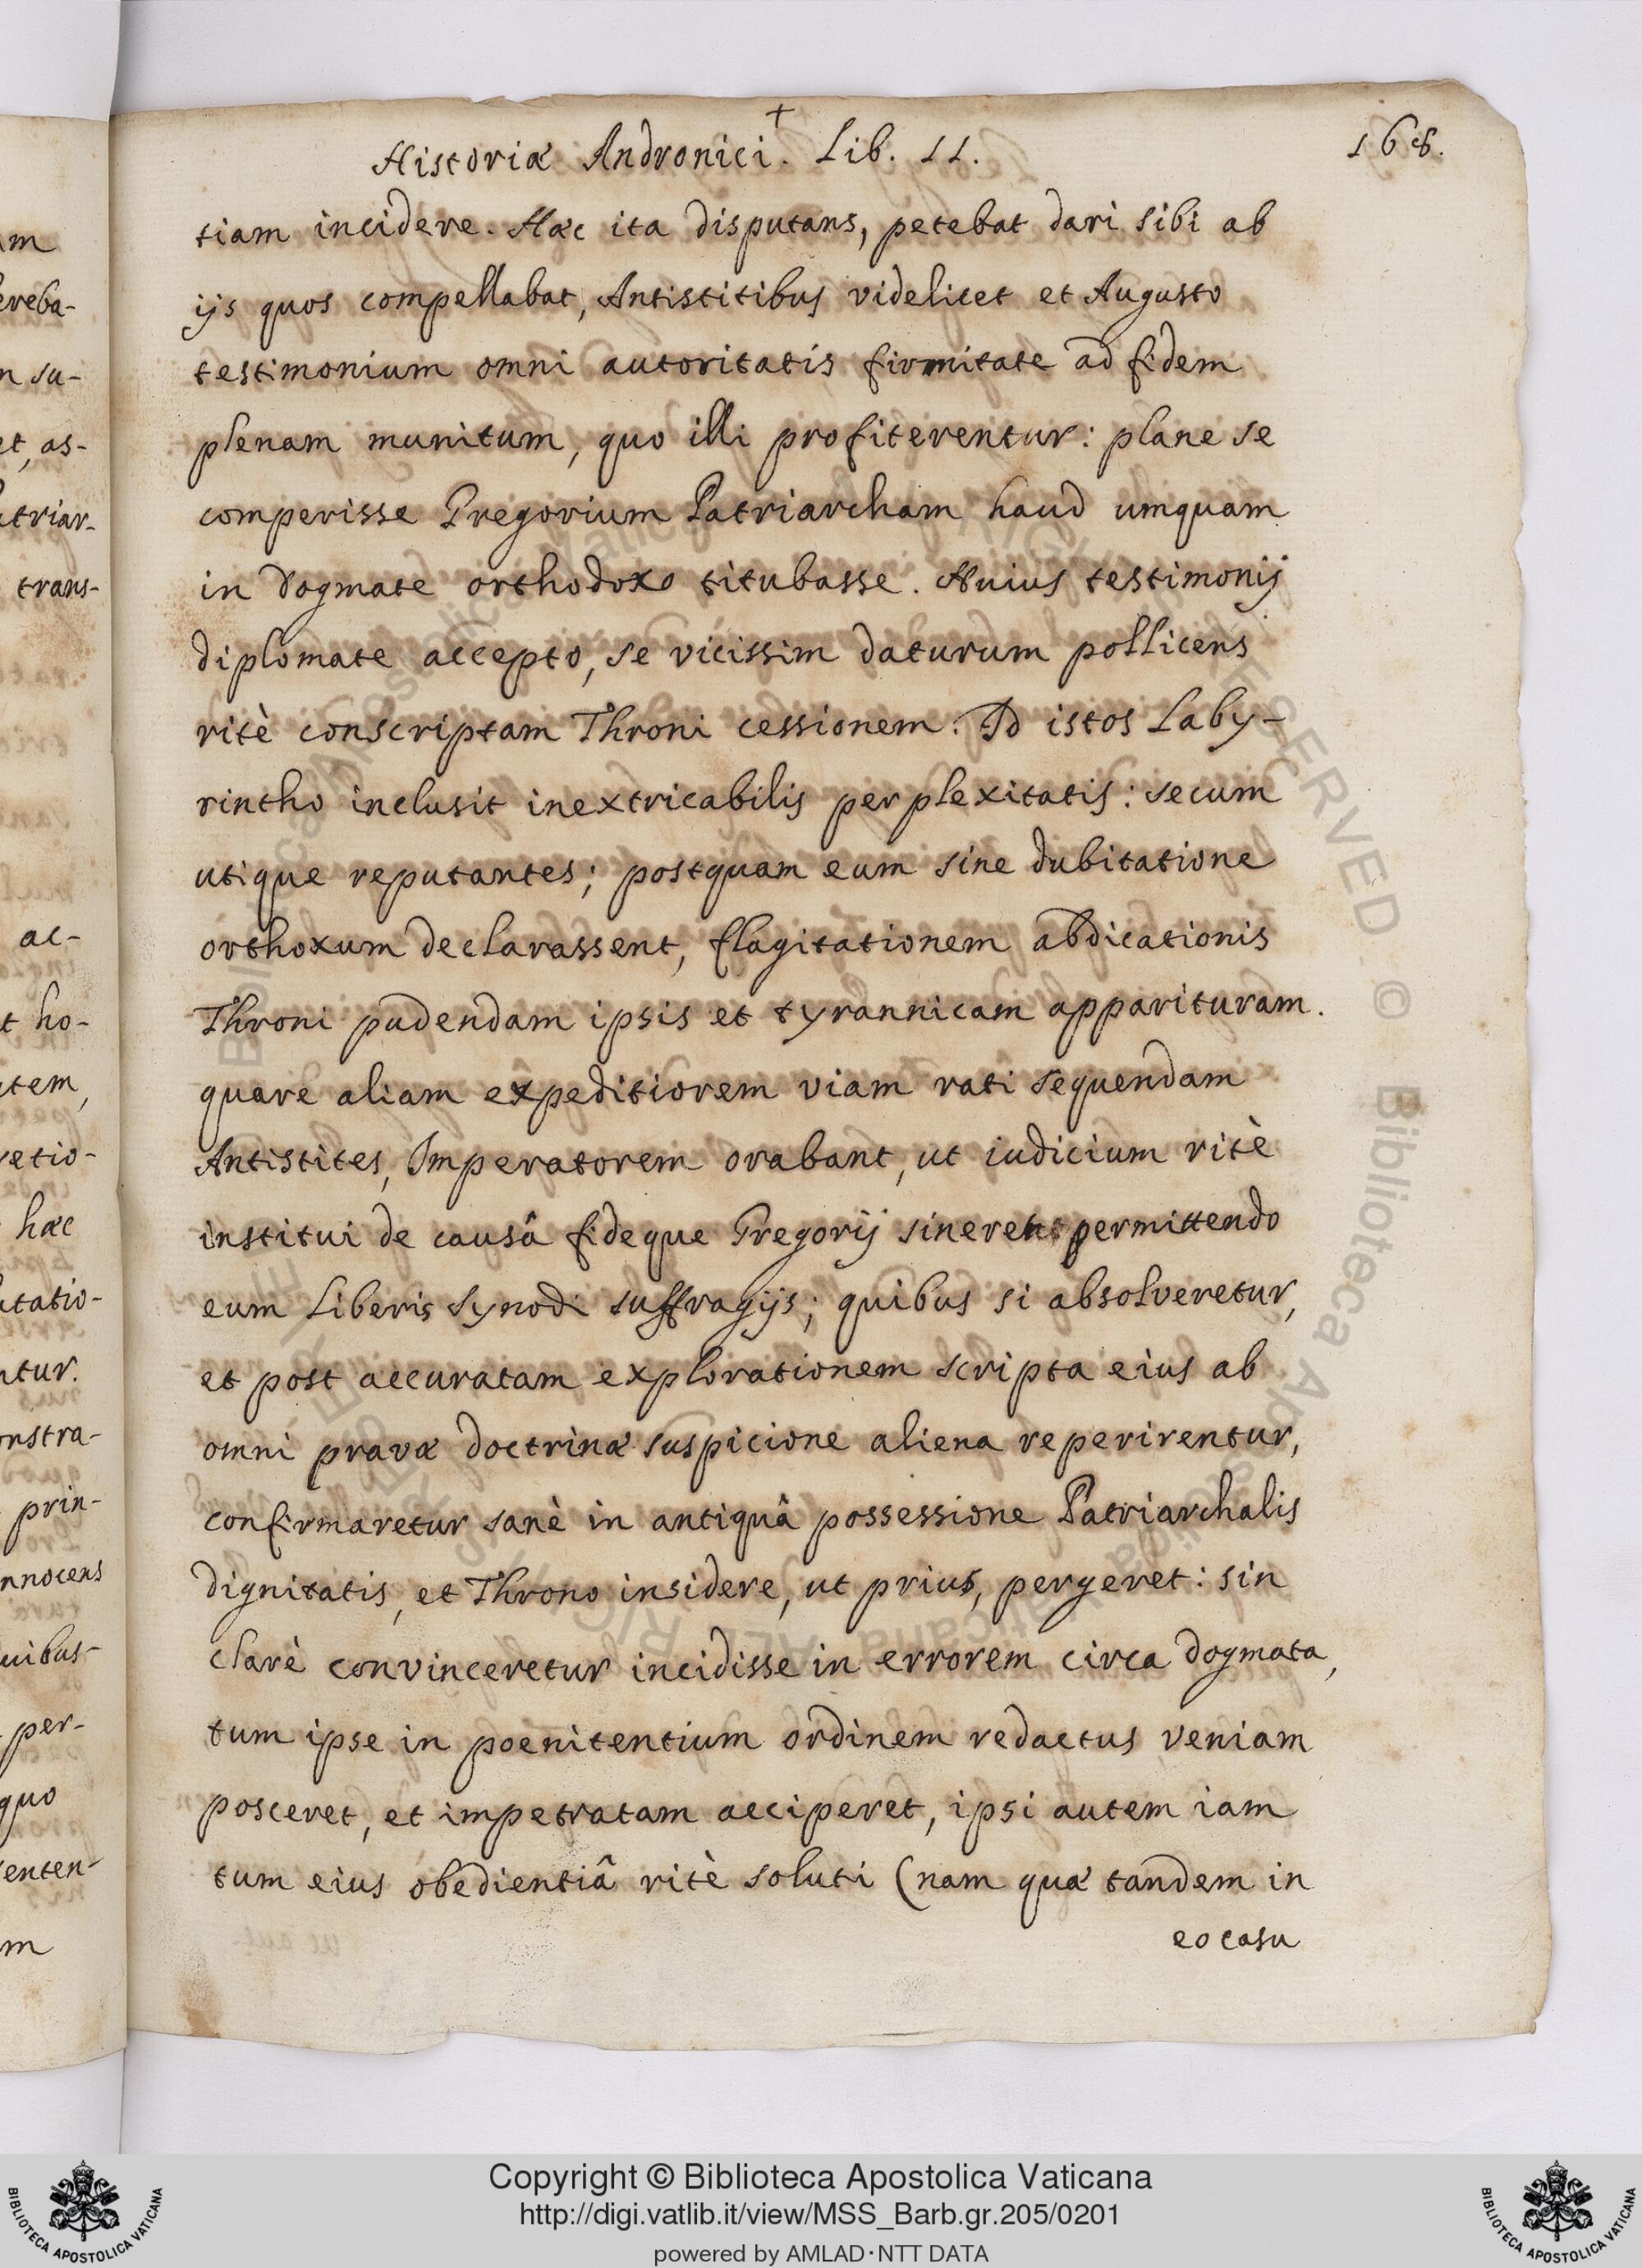 +
Historiæ Andronici. Lib. II.
168.
tiam incidere. Hæc ita disputans, petebat dari sibi ab
ijs quos compellabat, Antistitibus videlicet et Augusto
testimonium omni autoritatis firmitate ad fidem
plenam munitum, quo illi profiterentur: plane se
comperisse Gregorium Patriarcham haud umquam
in dogmate orthodoxo titubasse. Huius testimonij
diplomate accepto, se vicissim daturum pollicens
ritè conscriptam Throni cessionem. Id istos Laby-
rintho inclusit inextricabilis perplexitatis: secum
utique reputantes; postquam eum sine dubitatione
orthoxum declarassent, flagitationem abdicationis
Throni pudendam ipsis et tyrannicam apparituram.
quare aliam expeditiorem viam rati sequendam
Antistites, Imperatorem orabant, ut iudicium ritè
institui de causâ fideque Gregorij sineret permittendo
eum liberis Synodi suffragijs; quibus si absolveretur,
et post accuratam explorationem scripta eius ab
omni pravæ doctrinæ suspicione aliena reperirentur,
confirmaretur sanè in antiquâ possessione Patriarchalis
dignitatis, et Throno insidere, ut prius, pergeret: sin
clarè convinceretur incidisse in errorem circa dogmata,
tum ipse in poenitentium ordinem redactus veniam
posceret, et impetratam acciperet, ipsi autem iam
tum eius obedientiâ ritè soluti (nam quæ tandem in
eo casu
am
ereba-
n su-
et, as-
atriar-
trans-
ac-
t ho-
atem,
retio-
hæc
utatio-
ntur.
onstra-
prin-
nnocens
uibus-
per-
quo
senten-
m
Copyright © Biblioteca Apostolica Vaticana
http://digi.vatlib.it/view/MSS_Barb.gr.205/0201
powered by AMLAD·NTT DATA
BIBLIOTECA APOSTOLICA VATICANA
BIBLIOTECA APOSTOLICA VATICANA